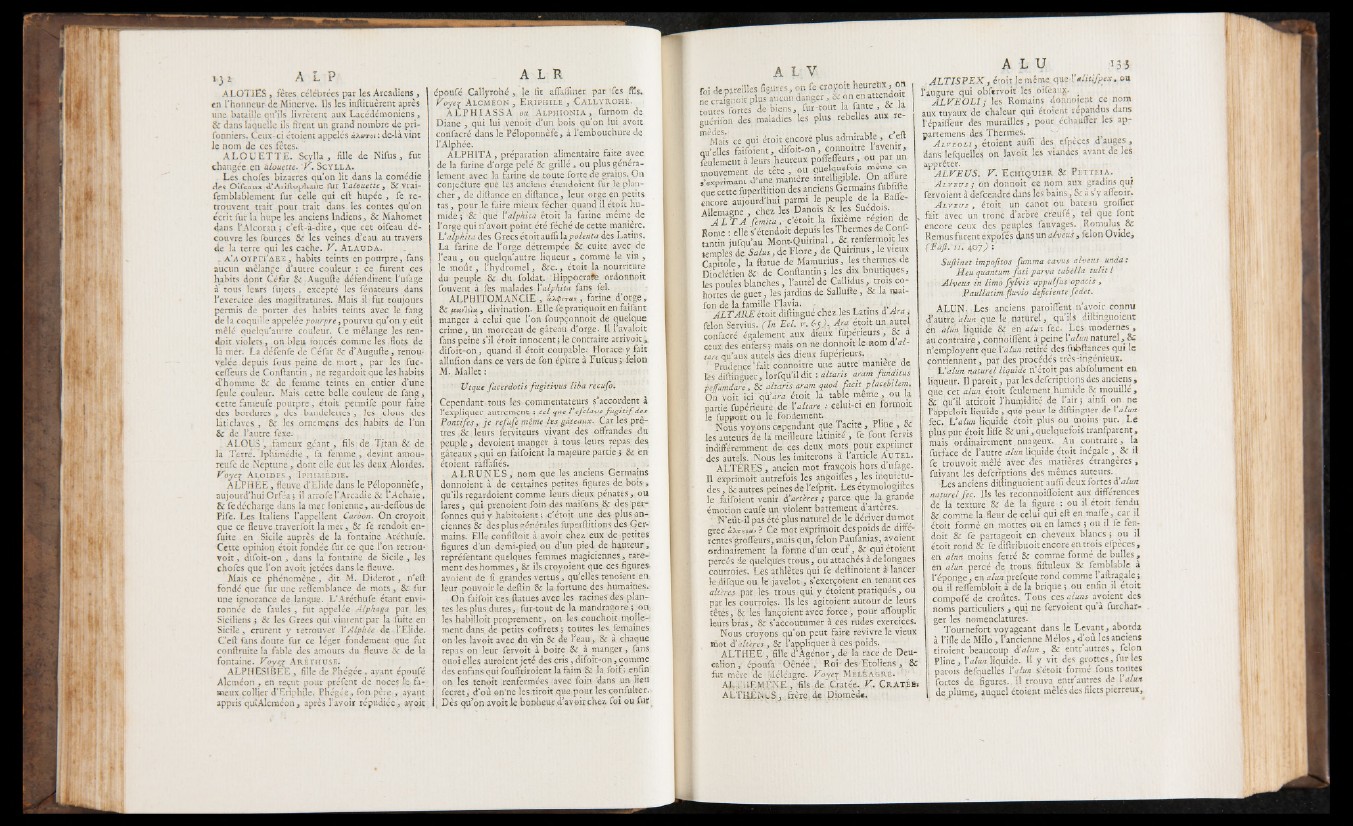 132 A L P
ALOTIES, fêtes célébrées par les Arcadiens,
en l'honneur de Minerve. Ils les instituèrent après
une bataille qu'ils livrèrent aux Lacédémoniens,
& dans laquelle ils firent un grand nombre de pri-
sonniers. Ceux-ci étoient appelés : de-là vint
le nom de ces fêtes.
ALOUETTE. Scylla, fille de Nisus, fut
changée en alouette. V. SCYLLA.
Les choses bizarres qu'on lit dans la comédie
des Oiseaux d'Aristophane sur l'alouette, & vrai-
semblablement sur celle qui est hupée, se re-
trouvent trait pour trait dans les contes qu'on
écrit sur la hupe les anciens Indiens, & Mahomet
dans l'Alcoran; c'est-à-dire, que cet oiseau dé-
couvre les sources & les veines d'eau au travers
de la terre qui les cache. V. ALAUDA.
habits teints en pourpre, sans
aucun mélange d'autre couleur : ce furent ces
habits dont César & Auguste défendirent l'usage
à tous leurs sujets, excepté les sénateurs dans
l'exercice des magistratures. Mais il fut toujours
permis de porter des habits teints avec le sang
de la coquille appelée pourpre, pourvu qu'on y eût
mêlé quelqu'autre couleur. Ce mélange les ren-
doit violets, ou bleu foncés comme les flots de
la mer. La défense de César & d'Auguste, renou-
velée depuis sous peine de mort, par les suc-
cesseurs de Constantin, ne regardoit que les habits
d'homme & de femme teints en entier d'une
seule couleur. Mais cette belle couleur de sang,
cette fameuse pourpre, étoit permise pour faire
des bordures, des bandelettes, les clous des
laticlaves, & les ornemens des habits de l'un
& de l'autre sexe.
ALOUS, fameux géant, fils de Titan & de
la Terre. Iphimédie, sa femme, devint amou-
reuse de Neptune, dont elle eut les deux Aloïdes.
Voyez ALOIDES, IPHIMÉDIE.
ALPHÉE, fleuve d'Elide dans le Péloponnèse,
aujourd'hui Orfea; il arrose l'Arcadie & l'Achaie,
& se décharge dans la mer Ionienne, au-dessous de
Pise. Les Italiens l'appellent Carbon. On croyoit
que ce fleuve traversoit la mer, & se rendoit en-
suite en Sicile auprès de la fontaine Aréthuse.
Cette opinion étoit fondée sur ce que l'on retrou-
voit, disoit-on, dans la fontaine de Sicile, les
choses que l'on avoit jetées dans le fleuve.
Mais ce phénomène, dit M. Diderot, n'est
fondé que sur une ressemblance de mots, & sur
une ignorance de langue. L'Aréthuse étant envi-
ronnée de saules, fut appelée Alphaga par les
Siciliens; & les Grecs qui vinrent par la suite en
Sicile, crurent y retrouver l'Alphée de l'Elide.
C'est sans doute sur ce léger fondement que fut
construite la fable des amours du fleuve & de la
fontaine. Voyez ARÉTHUSE.
ALPHÉSIBÉE, fille de Phégée, ayant épousé
Alcméon, en reçut pour présent de noces le fa-
meux collier d'Eriphile. Phégée, son père, ayant
appris qu'Alcméon, après l'avoir répudiée, avoit
A L R
épousé Callyrohé, le fit assassiner par ses fils.
Voyez ALCMEON, ERIPHILE, CALLYROHE.
ALPHIASSA ou ALPHIONIA, surnom de
Diane, qui lui venoit d'un bois qu'on lui avoit
consacré dans le Péloponnèse, à l'embouchure de
l'Alphée.
ALPHITA, préparation alimentaire faite avec
de la farine d'orge pelé & grillé, ou plus généra-
lement avec la farine de toute sorte de grains. On
conjecture que les anciens étendoient sur le plan-
cher, de distance en distance, leur orge en petits
tas, pour le faire mieux sécher quand il étoit hu-
mide; & que l'alphita étoit la farine même de
l'orge qui n'avoit point été séché de cette manière.
L'alphita des Grecs étoit aussi la polenta des Latins.
La farine de l'orge détrempée & cuite avec de
l'eau, ou quelqu'autre liqueur, comme le vin,
le moût, l'hydromel, &c., étoit la nourriture
du peuple & du soldat. Hippocrate ordonnoit
souvent à ses malades l'alphita sans sel.
ALPHITOMANCIE, , farine d'orge,
& , divination. Elle se pratiquoit en faisant
manger à celui que l'on soupçonnoit de quelque
crime, un morceau de gâteau d'orge. Il l'avaloit
sans peine s'il étoit innocent; le contraire arrivoit,
disoit-on, quand il étoit coupable. Horace y fait
allusion dans ce vers de son épitre à Fuscus; selon
M. Mallet :
Utque sacerdotis fugitivus liba recuso.
Cependant tous les commentateurs s'accordent à
l'expliquer autrement : tel que l'esclave fugitif des
Pontifes, je refuse même les gâteaux. Car les prê-
tres & leurs serviteurs vivant des offrandes du
peuple, devoient manger à tous leurs repas des
gâteaux, qui en faisoient la majeure partie; & en
étoient rassasiés.
ALRUNES, nom que les anciens Germains
donnoient à de certaines petites figures de bois,
qu'ils regardoient comme leurs dieux pénates, ou
lares, qui prenoient soin des maisons & des per-
sonnes qui y habitoient : c'étoit une des plus an-
ciennes & des plus générales superstitions des Ger-
mains. Elle consistoit à avoir chez eux de petites
figures d'un demi-pied ou d'un pied de hauteur,
représentant quelques femmes magiciennes, rare-
ment des hommes, & ils croyoient que ces figures
avoient de si grandes vertus, qu'elles tenoient en
leur pouvoir le destin & la fortune des humaines.
On faisoit ces statues avec les racines des plan-
tes les plus dures, sur-tout de la mandragore; on
les habilloit proprement, on les couchoit molle-
ment dans de petits coffrets; toutes les semaines
on les lavoit avec du vin & de l'eau, & à chaque
repas on leur servoit à boire & à manger, sans
quoi elles auroient jeté des cris, disoit-on, comme
des enfans qui souffriroient la faim & la soif; enfin
on les tenoit renfermées avec soin dans un lieu
secret, d'où on ne les tiroit que pour les consulter.
Dès qu'on avoit le bonheur d'avoir chez soi ou sur
A L V
soi de pareilles figures, on se croyoit heureux, on
ne craignoit plus aucun danger, & on en attendoit
toutes sortes de biens, sur-tout la santé, & la
guérison des maladies les plus rebelles aux re-
mèdes.
Mais ce qui étoit encore plus admirable, c'est
qu'elles faisoient, disoit-on, connoître l'avenir,
seulement à leurs heureux possesseurs, ou par un
mouvement de tête, ou quelquefois même en
s'exprimant d'une manière intelligible. On assure
que cette superstition des anciens Germains subsiste
encore aujourd'hui parmi le peuple de la Basse-
Allemagne, chez les Danois & les Suédois.
ALTA semita, c'étoit la sixième région de
Rome : elle s'étendoit depuis les Thermes de Cons-
tantin jusqu'au Mont-Quirinal, & renfermoit les
temples de Salus, de Flore, de Quirinus, le vieux
Capitole, la statue de Mamurius, les thermes de
Dioclétien & de Constantin; les dix boutiques,
les poules blanches, l'autel de Callidus, trois co-
hortes de guet, les jardins de Salluste, & la mai-
son de la famille Flavia.
ALTARE étoit distingué chez les Latins d'Ara,
selon Servius. (In Ecl. v. 65). Ara étoit un autel
consacré également aux dieux supérieurs, & à
ceux des enfers; mais on ne donnoit le nom d'al-
tare qu'aux autels des dieux supérieurs.
Prudence fait connoître une autre manière de
les distinguer, lorsqu'il dit : altaris aram funditus
pessumdare, & altaris aram quod facit placebilem.
On voit ici qu'ara étoit la table même, ou la
partie supérieure de l'altare : celui-ci en formoit
le support ou le fondement.
Nous voyons cependant que Tacite, Pline, &
les auteurs de la meilleure latinité, se sont servis
indifféremment de ces deux mots pour exprimer
des autels. Nous les imiterons à l'article AUTEL.
ALTERES, ancien mot françois hors d'usage.
Il exprimoit autrefois les angoisses, les inquiétu-
des, & autres peines de l'esprit. Les étymologistes
le faisoient venir d'artères; parce que la grande
émotion cause un violent battement d'artères.
N'eût-il pas été plus naturel de le dériver du mot
grec ? Ce mot exprimoit des poids de diffé-
rentes grosseurs, mais qui, selon Pausanias, avoient
ordinairement la forme d'un œuf, & qui étoient
percés de quelques trous, ou attachés à de longues
courroies. Les athlètes qui se destinoient à lancer
le disque ou le javelot, s'exerçoient en tenant ces
altères par les trous qui y étoient pratiqués, ou
par les courroies. Ils les agitoient autour de leurs
têtes, & les lançoient avec force, pour assouplir
leurs bras, & s'accoutumer à ces rudes exercices.
Nous croyons qu'on peut faire revivre le vieux
mot d'altères, & l'appliquer à ces poids.
ALTHÉE, fille d'Agenor, de la race de Deu-
calion, épousa Oénée, Roi des Etoliens, &
fut mère de Méléagre. Voyez MÉLÉAGRE.
ALTHEMENE, fils de Cratée. V. CRATÉE.
ALTHENUS, frère de Diomède.
A L U 133
ALTISPEX, étoit le même que l'alitispex, ou
l'augure qui observoit les oiseaux.
ALVEOLI; les Romains donnoient ce nom
aux tuyaux de chaleur qui étoient répandus dans
l'épaisseur des murailles, pour échauffer les ap-
partemens des Thermes.
ALVEOLI, étoient aussi des espèces d'auges,
dans lesquelles on lavoit les viandes avant de les
apprêter.
ALVEUS. V. ECHIQUIER & PETTEIA.
ALVEUS; on donnoit ce nom aux gradins qui
servoient à descendre dans les bains, & à s'y asseoir.
ALVEUS, étoit un canot ou bateau grossier
fait avec un tronc d'arbre creusé, tel que sont
encore ceux des peuples sauvages. Romulus &
Remus furent exposés dans un alveus, selon Ovide,
(Fast. 11. 407.) :
Sustinet impositos summa cavus alveus unda:
Heu quantum fati parva tabella tulit!
Alveus in limo sylvis appulsus opacis,
Paullatim fluvio deficiente sedet.
ALUN. Les anciens paroissent n'avoir connu
d'autre alun que le naturel, qu'ils distinguoient
en alun liquide & en alun sec. Les modernes,
au contraire, connoissent à peine l'alun naturel, &
n'employent que l'alun retiré des substances qui le
contiennent, par des procédés très-ingénieux.
L'alun naturel liquide n'étoit pas absolument en
liqueur. Il paroît, par les descriptions des anciens,
que cet alun étoit seulement humide & mouillé,
& qu'il attiroit l'humidité de l'air; ainsi on ne
l'appeloit liquide, que pour le distinguer de l'alun
sec. L'alun liquide étoit plus ou moins pur. Le
plus pur étoit lisse & uni, quelquefois transparent,
mais ordinairement nuageux. Au contraire, la
surface de l'autre alun liquide étoit inégale, & il
se trouvoit mêlé avec des matières étrangères,
suivant les descriptions des mêmes auteurs.
Les anciens distinguoient aussi deux sortes d'alun
naturel sec. Ils les reconnoissoient aux différences
de la texture & de la figure : ou il étoit fendu
& comme la fleur de celui qui est en masse, car il
étoit formé en mottes ou en lames; ou il se fen-
doit & se partageoit en cheveux blancs; ou il
étoit rond & se distribuoit encore en trois espèces,
en alun moins serré & comme formé de bulles,
en alun percé de trous fistuleux & semblable à
l'éponge, en alun presque rond comme l'astragale;
ou il ressembloit à de la brique; ou enfin il étoit
composé de croûtes. Tous ces aluns avoient des
noms particuliers, qui ne servoient qu'à surchar-
ger les nomenclatures.
Tournefort voyageant dans le Levant, aborda
à l'isle de Milo, l'ancienne Mélos, d'où les anciens
tiroient beaucoup d'alun, & entr'autres, selon
Pline, l'alun liquide. Il y vit des grottes, sur les
parois desquelles l'alun s'étoit formé sous toutes
sortes de figures. Il trouva entr'autres de l'alun
de plume, auquel étoient mêlés des filets pierreux,